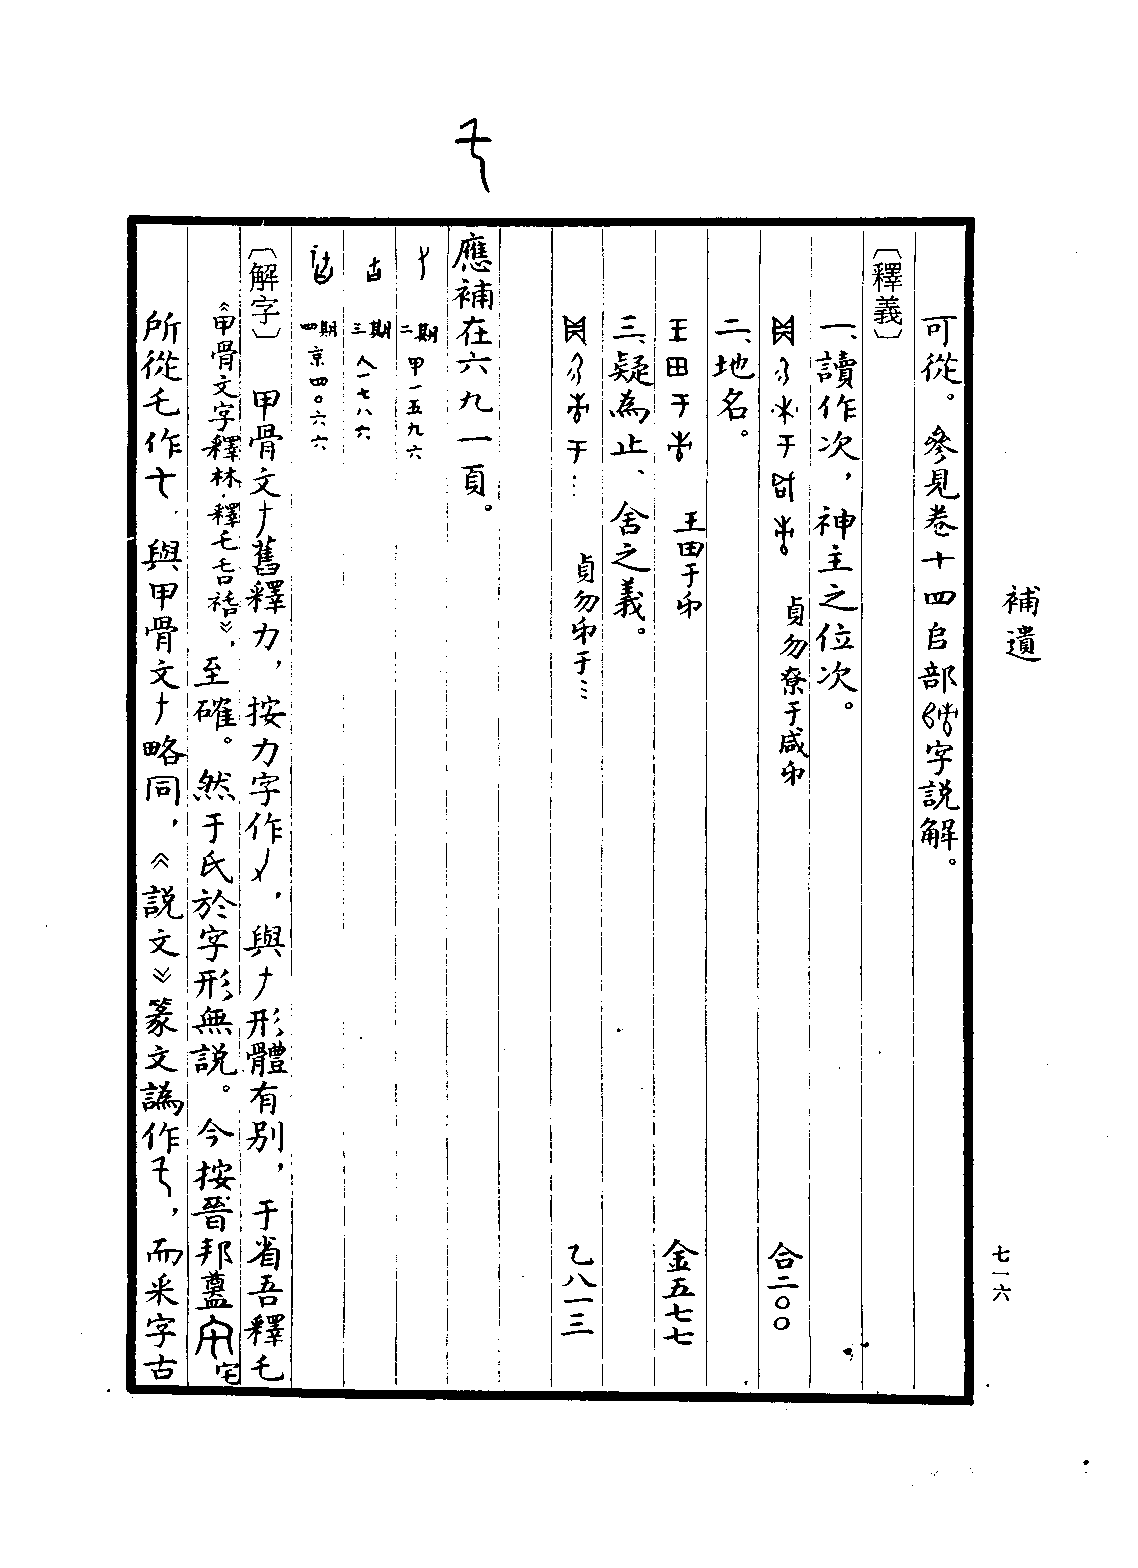 補遺
七一六
可從。參見卷十四𨸏部字説解。
〔釋義〕
一、讀作次，神主之位次。
貞勿尞于咸𠂔 合二〇〇
二、地名。
王田于𠂔 王田于𠂔 金五七七
三、疑為止、舍之義。
貞勿𠂔于… 乙八一三
應補在六九一頁。
二期 甲一五九六
三期 人一七八六
四期 京四〇六六
〔解字〕甲骨文舊釋力，按力字作，與形體有別，于省吾釋乇
《甲骨文字釋林·釋乇舌𥛠》，至確。然于氏於字形無説。今按晉邦𥂴宅
所從乇作，與甲骨文略同，《説文》篆文譌作，而釆字古